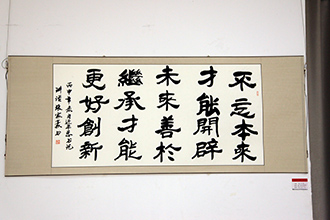 不忘本來
才能開辟
未來善於
繼承才能
更好創新